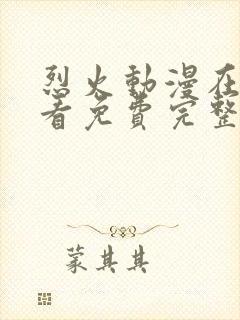 烈火動漫在
看免費完整
蒙其其